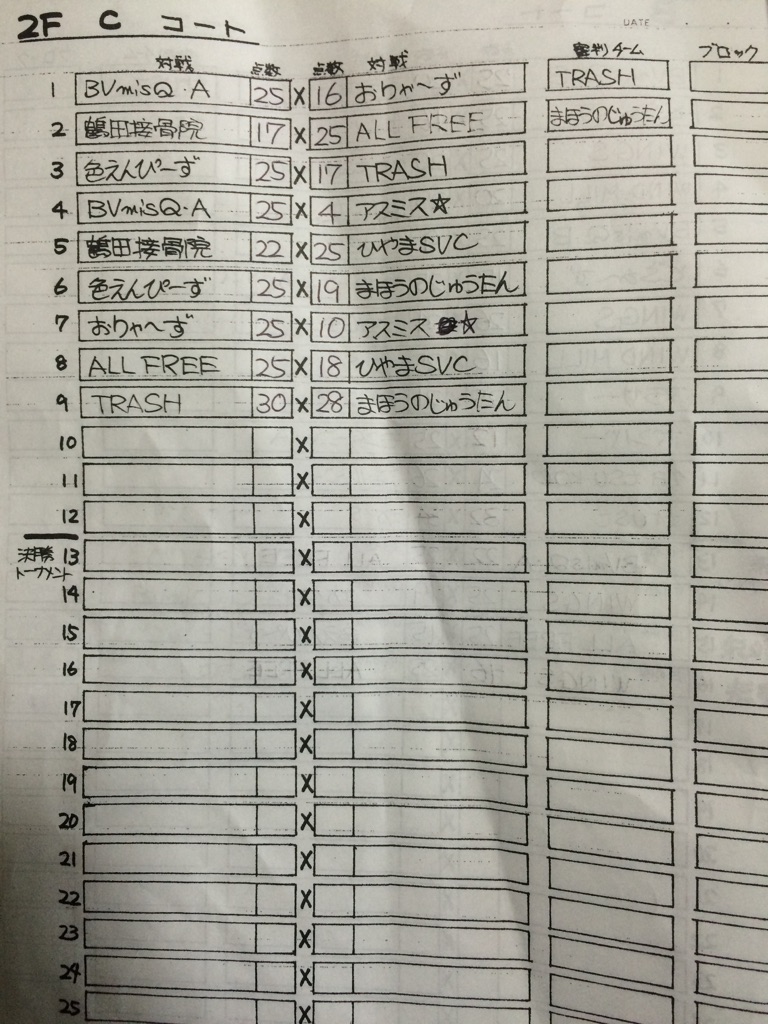 2F C コート
DATE . .
対戦 点数 点数 対戦 審判チーム ブロック
1 BVmisQ・A 25 X 16 おりゃ〜ず TRASH
2 鶴田接骨院 17 X 25 ALL FREE まほうのじゅうたん
3 色えんぴーず 25 X 17 TRASH
4 BVmisQ・A 25 X 4 アスミス☆
5 鶴田接骨院 22 X 25 ひやまSVC
6 色えんぴーず 25 X 19 まほうのじゅうたん
7 おりゃ〜ず 25 X 10 アスミス☆
8 ALL FREE 25 X 18 ひやまSVC
9 TRASH 30 X 28 まほうのじゅうたん
10 X
11 X
12 X
決勝トーナメント 13 X
14 X
15 X
16 X
17 X
18 X
19 X
20 X
21 X
22 X
23 X
24 X
25 X